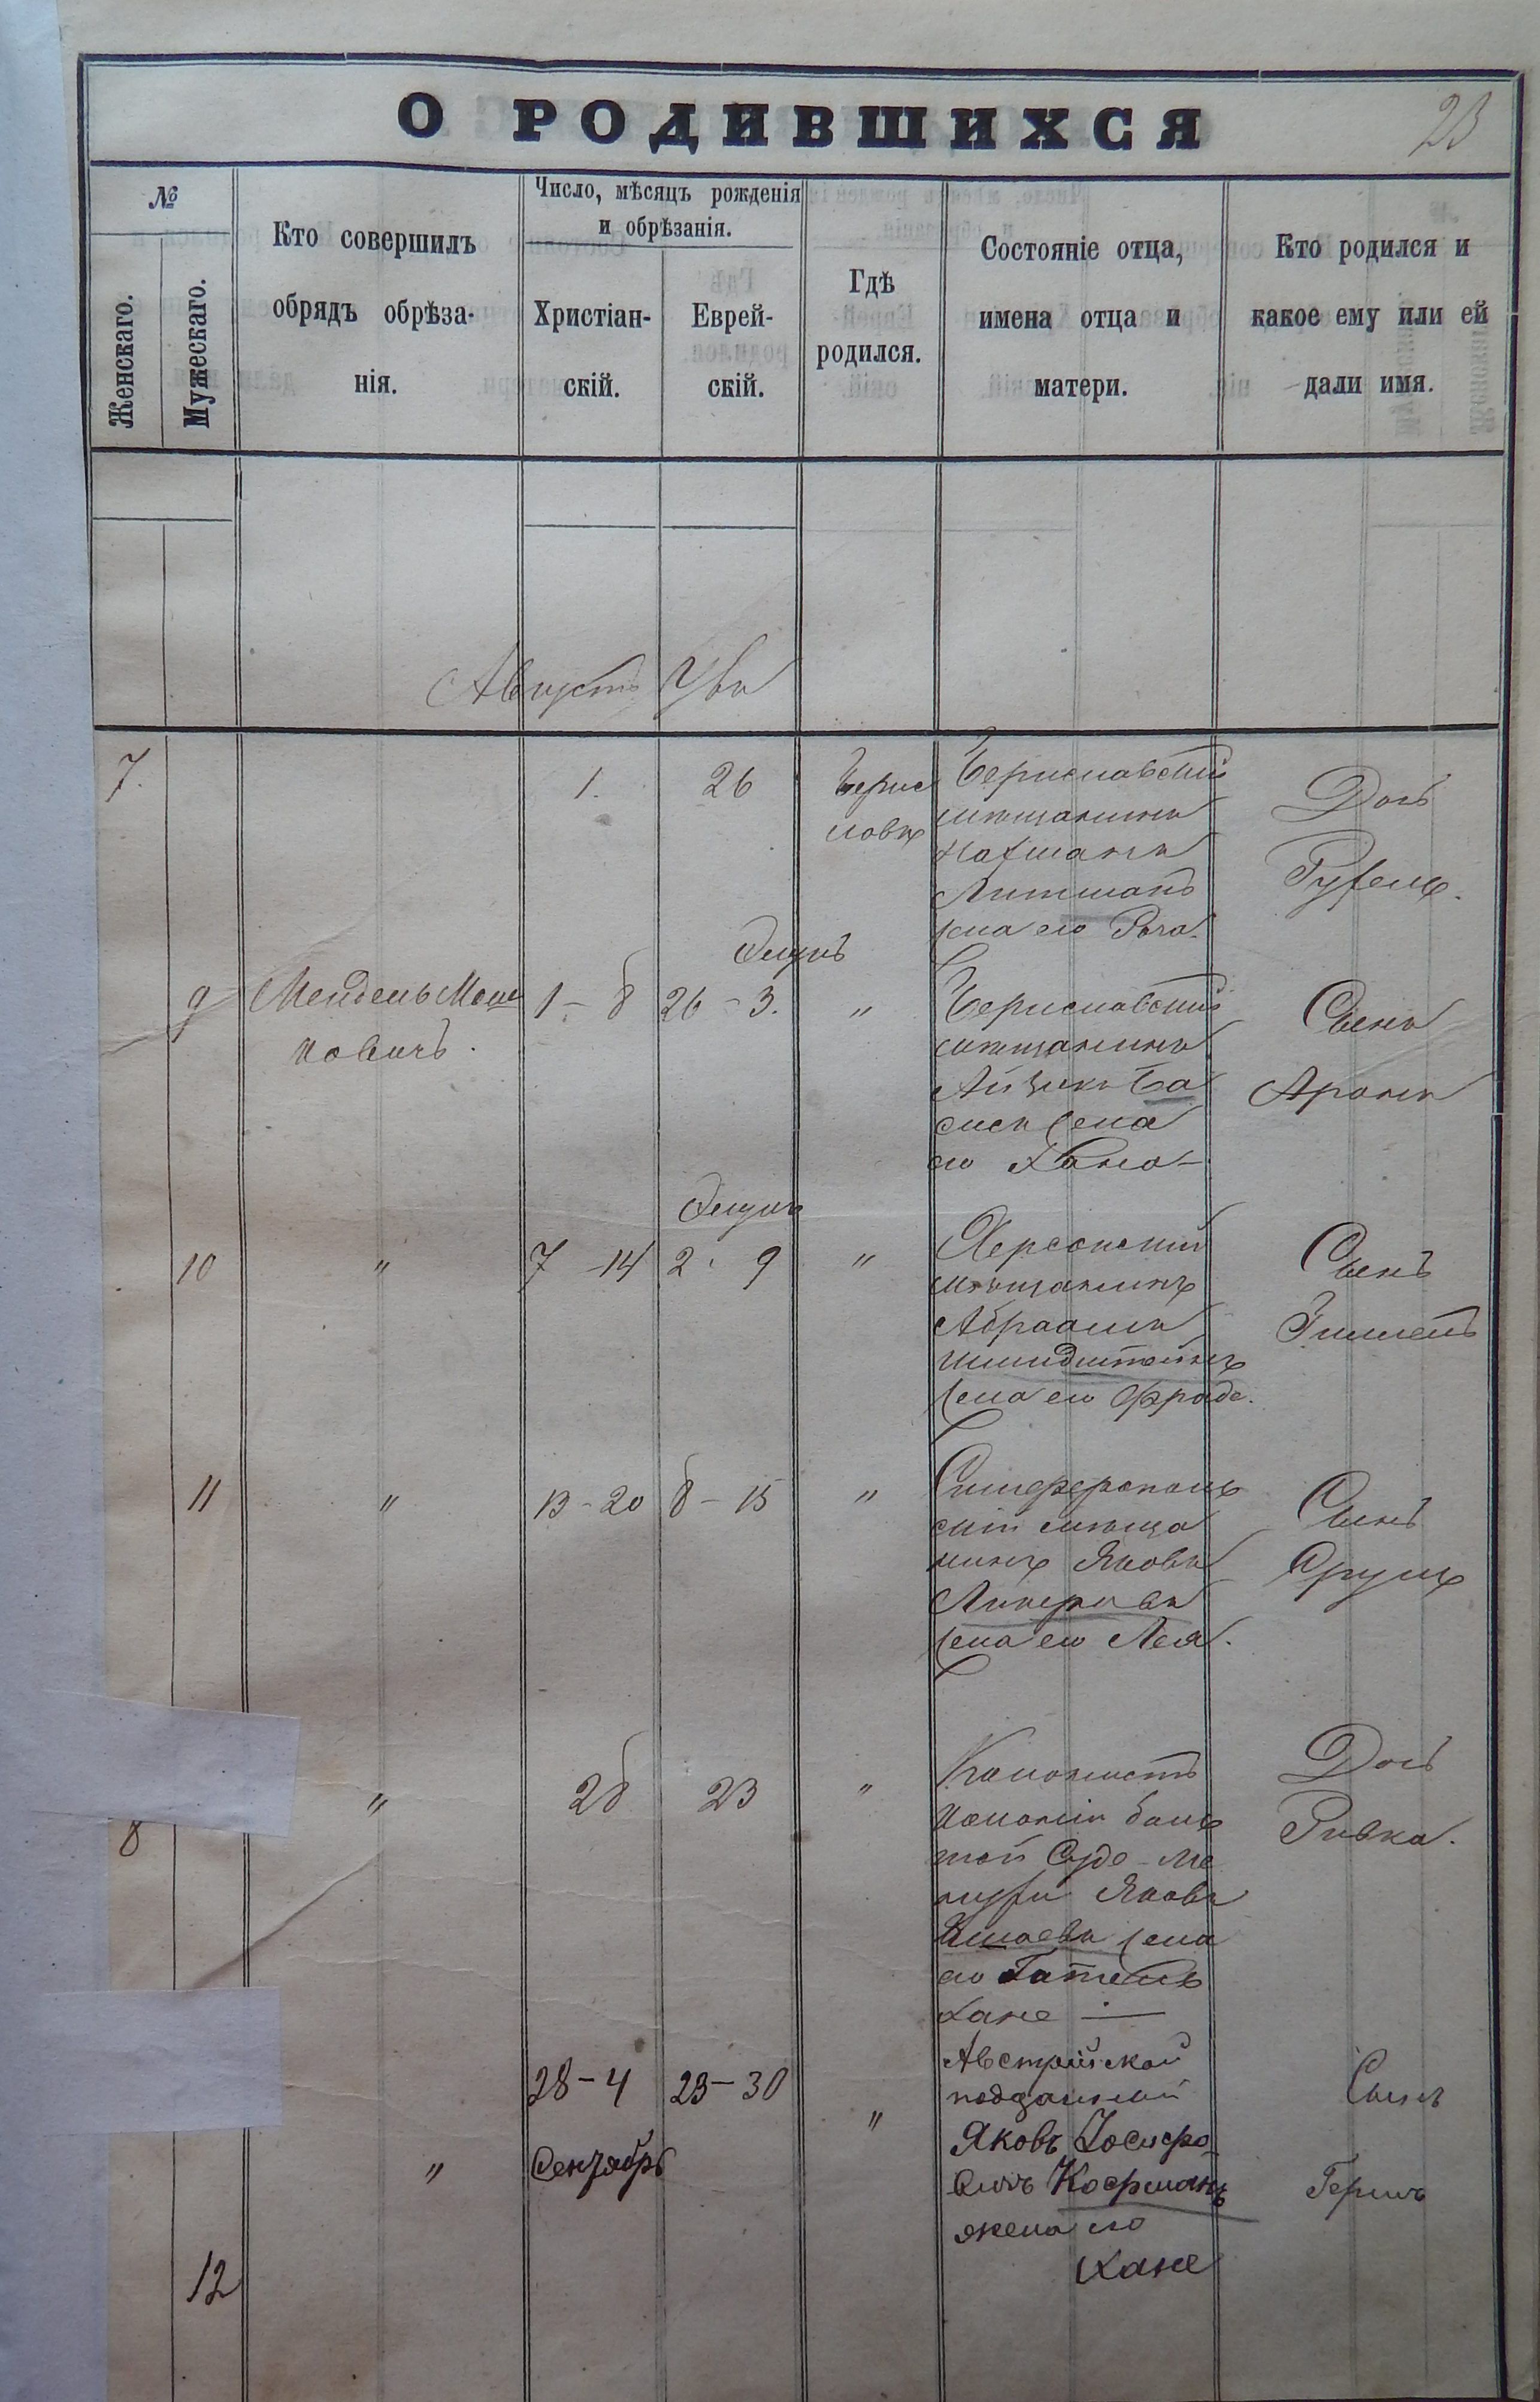 О РОДИВШИХСЯ
23
№
Женскаго.
Мужескаго.
Кто совершилъ
обрядъ обрѣза-
нія.
Число, мѣсяцъ рожденія
и обрѣзанія.
Христіан-
скій.
Еврей-
скій.
Гдѣ
родился.
Состояніе отца,
имена отца и
матери.
Кто родился и
какое ему или ей
дали имя.
Августъ
7.
1.
26
Берис
лавъ
Бериславскій
мѣщанинъ
Нахманъ
Литманъ
жена его
Дочь
Рухель.
9
Мендель Мош
ковичъ.
1-8
Элулъ
26-3.
"
Бериславскій
мѣщанинъ
Айзикъ Ба
сисъ жена
его Хана-
Сынъ
Аронъ
10
"
7-14
Элулъ
2. 9
"
Херсонскій
мѣщанинъ
Абраамъ
Шмидштейнъ
жена его Фрада.
Сынъ
11
"
13-20
8-15
"
Симферополь
скій мѣща
нинъ Яковъ
жена его Лея.
Сынъ
8
"
28
23
"
Колонистъ
колоніи боль
шой Суде-Ме
нухи Яковъ
жена
его
Хане
Дочь
Ривка.
12
"
28-4
Сентябрь
23-30
"
Австрійской
подданный
Яковъ Іосифо
вичъ Кофманъ
жена его
Хане
Сынъ
Гершъ